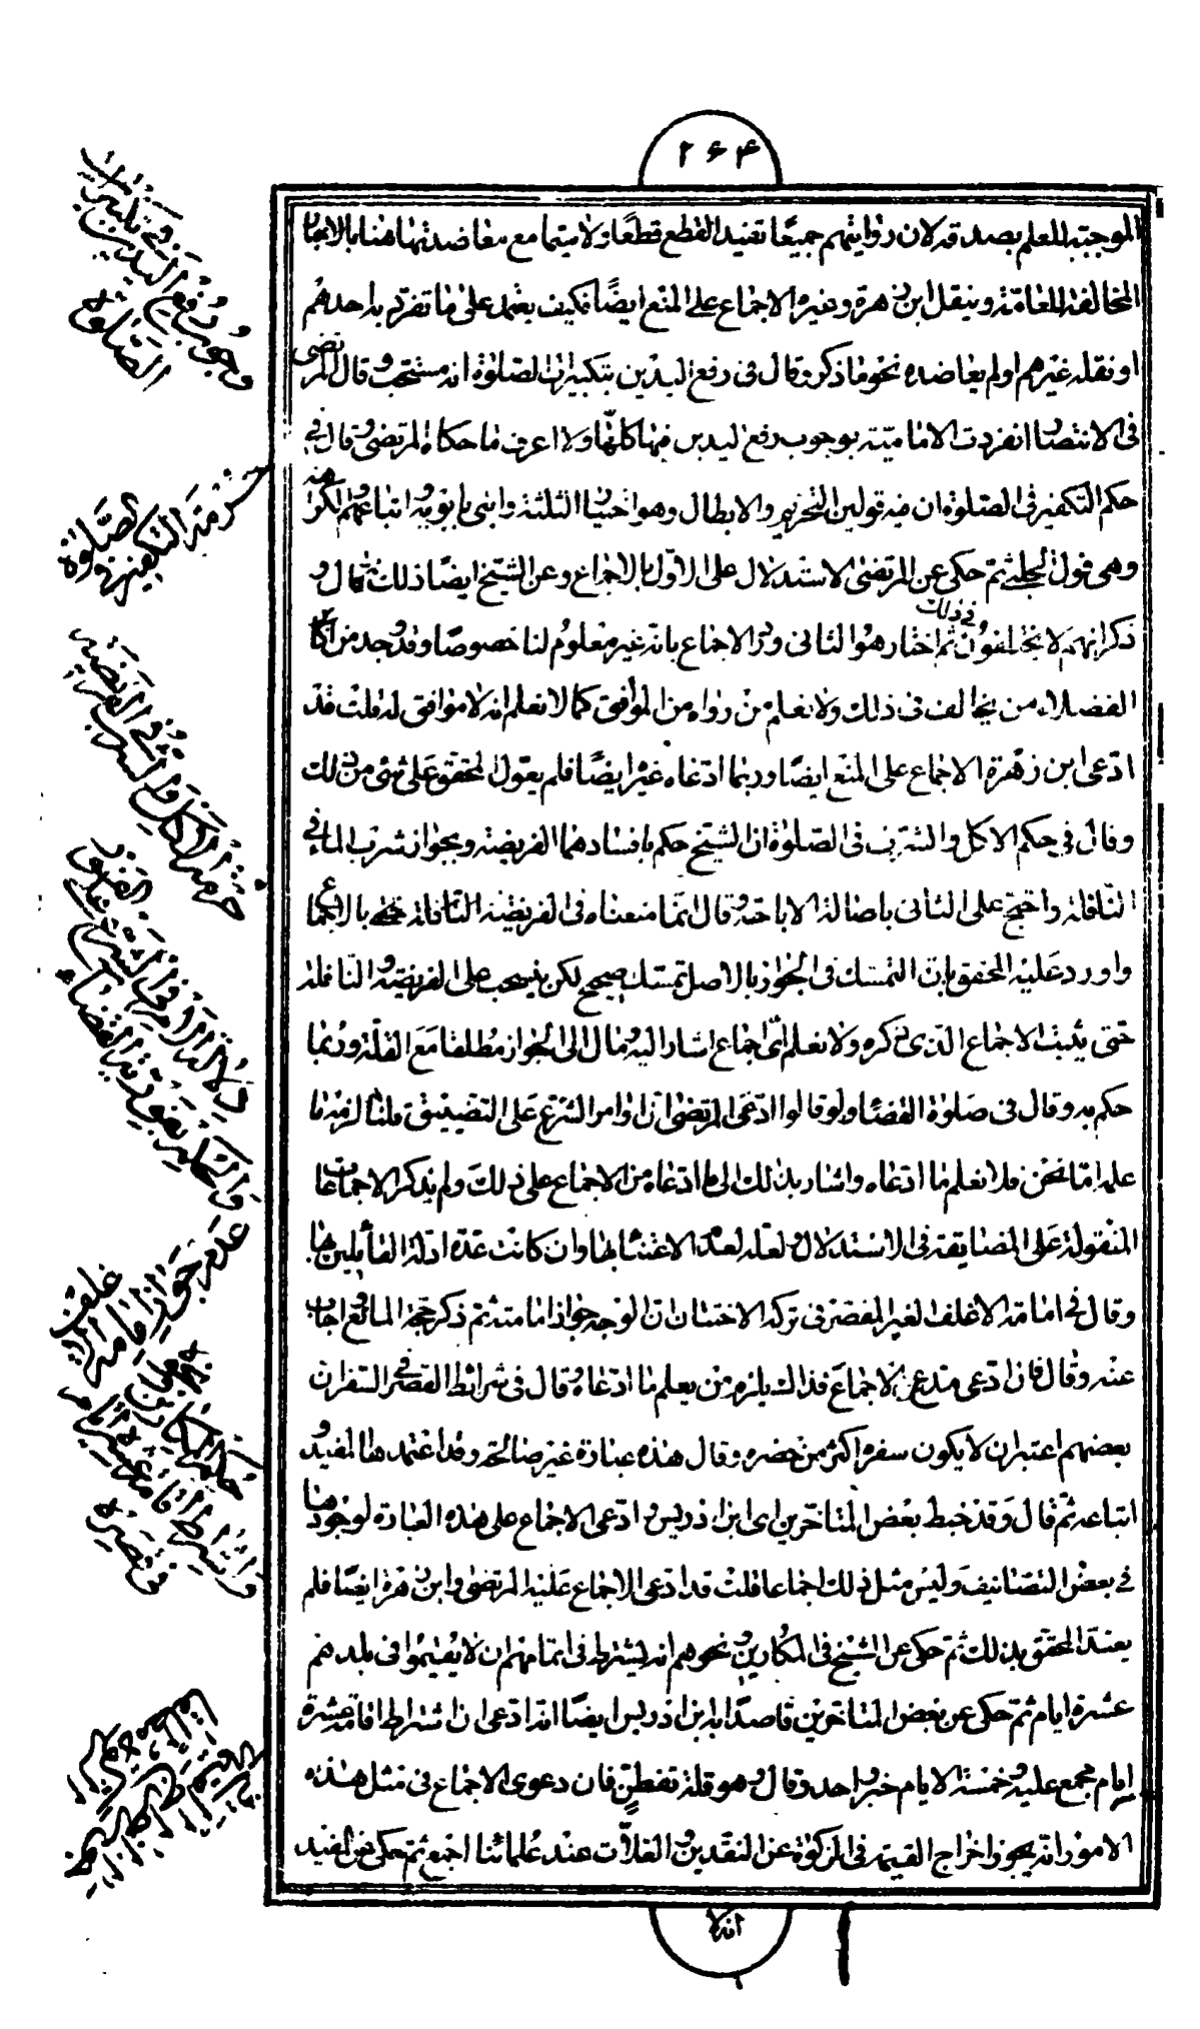 ۲۶۴
الموجبة للعلم بصدقه لان روايتهم جميعًا تفيد القطع قطعًا ولا سيما مع معاضدتها هنا بالاخبار
المخالفة للعامة وبنقل ابن زهرة وغيره الاجماع على المنع ايضًا فكيف يعتمد على ما تفرد به احدهم
او نقله غيرهم ولم يعاضده نحو ما ذكرنا وقال في رفع اليدين بتكبيرات الصلوة انه مستحب وقال المرتضى
في الانتصار انفردت الامامية بوجوب رفع اليدين فيها كلها ولا اعرف ما حكاه المرتضى وقال في
حكم التكفير في الصلوة ان فيه قولين التحريم والابطال وهو اختيار الثلثة وابني بابويه واتباعهم والكراهة
وهي قول الحلبي ثم حكى عن المرتضى الاستدلال على الاول بالاجماع وعن الشيخ ايضًا ذلك ثم قال و
ذكر انهم لا يختلفون في ذلك ثم اختار هو الثاني ورد الاجماع بانه غير معلوم لنا خصوصًا وقد وجد من اكابر
الفضلاء من يخالف في ذلك ولا نعلم من رواه من الموافق كما لا نعلم انه لا موافق له قلت قد
ادعى ابن زهرة الاجماع على المنع ايضًا وربما ادعاه غيره ايضًا فلم يعول المحقق على شيء من ذلك
وقال في حكم الاكل والشرب في الصلوة ان الشيخ حكم بافسادهما الفريضة وبجواز شرب الماء في
النافلة واحتج على الثاني باصالة الاباحة وقال انما منعناه في الفريضة بالاجماع
واورد عليه المحقق بان التمسك في الجواز بالاصل تمسك صحيح لكن ينسحب على الفريضة والنافلة
حتى يثبت الاجماع الذي ذكره ولا نعلم اي اجماع اشار اليه ومال الى الجواز مطلقا مع القلة وربما
حكم به وقال في صلوة القضاء ولو قالوا ادعى المرتضى ان اوامر الشرع على التضييق قلنا يلزمه ما
علمه اما نحن فلا نعلم ما ادعاه واشار بذلك الى ما ادعاه من الاجماع على ذلك ولم يذكر الاجماعات
المنقولة على المضايقة في الاستدلال ولعله لعدم الاعتناء بها وان كانت عمدة ادلة القائلين بها
وقال في امامة الاغلف الغير المقصر في تركه الاختتان ان الوجه جواز امامته ثم ذكر حجة المانع واجاب
عنه وقال فان ادعى مدع الاجماع فذلك يلزم من يعلم ما ادعاه وقال في شرائط القصر في السفر ان
بعضهم اعتبر ان لا يكون سفره اكثر من حضره وقال هذه عبارة غير صالحة وقد اعتمدها المفيد و
اتباعه ثم قال وقد خبط بعض المتاخرين اي ابن ادريس وادعى الاجماع على هذه العبارة لوجودها
في بعض التصانيف وليس مثل ذلك اجماعا قلت قد ادعى الاجماع عليه المرتضى وابن زهرة ايضًا فلم
يعتد المحقق بذلك ثم حكى عن الشيخ في المكارين ونحوهم انه يشترط في اتمامهم ان لا يقيموا في بلدهم
عشرة ايام ثم حكى عن بعض المتاخرين قاصدًا به ابن ادريس ايضًا انه ادعى ان اشتراط اقامة عشرة
ايام مجمع عليه وخمسة الايام خبر واحد وقال وهو قلة تفطن فان دعوى الاجماع في مثل هذه
الامور وانه يجوز اخراج القيمة في الزكوة عن النقدين والغلات عند علمائنا اجمع ثم حكى عن المفيد
انه لا
وجوب رفع اليدين في تكبيرات
الصلوة
حرمة التكفير في الصلوة
حرمة الاكل والشرب في الفريضة
دلالة الامر في الشرع على الفور
والحكم بفورية القضاء
عدم جواز امامة الاغلف
حكم المكارين
واشتراط اقامة عشرة ايام